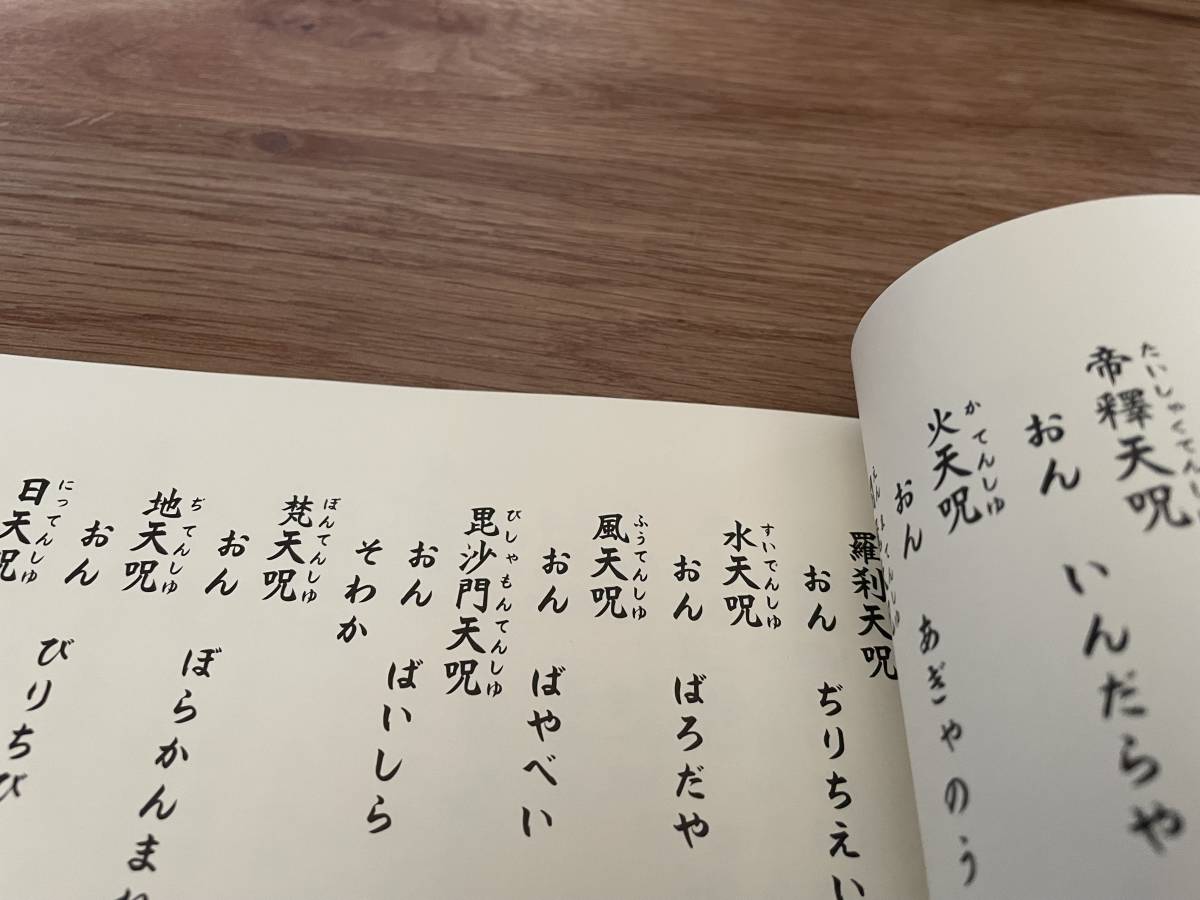 帝釋天呪
たいしゃくてんし
おん いんだらや
火天呪
かてんしゆ
おん あぎやのう
羅刹天呪
おん ぢりちえい
水天呪
すいてんしゆ
おん ばろだや
風天呪
ふうてんしゆ
おん ばやべい
毘沙門天呪
びしゃもんてんしゆ
おん ばいしら
そわか
梵天呪
ぼんてんしゆ
おん ぼらかんま
地天呪
ぢてんしゆ
おん びりちび
日天呪
にってんしゆ